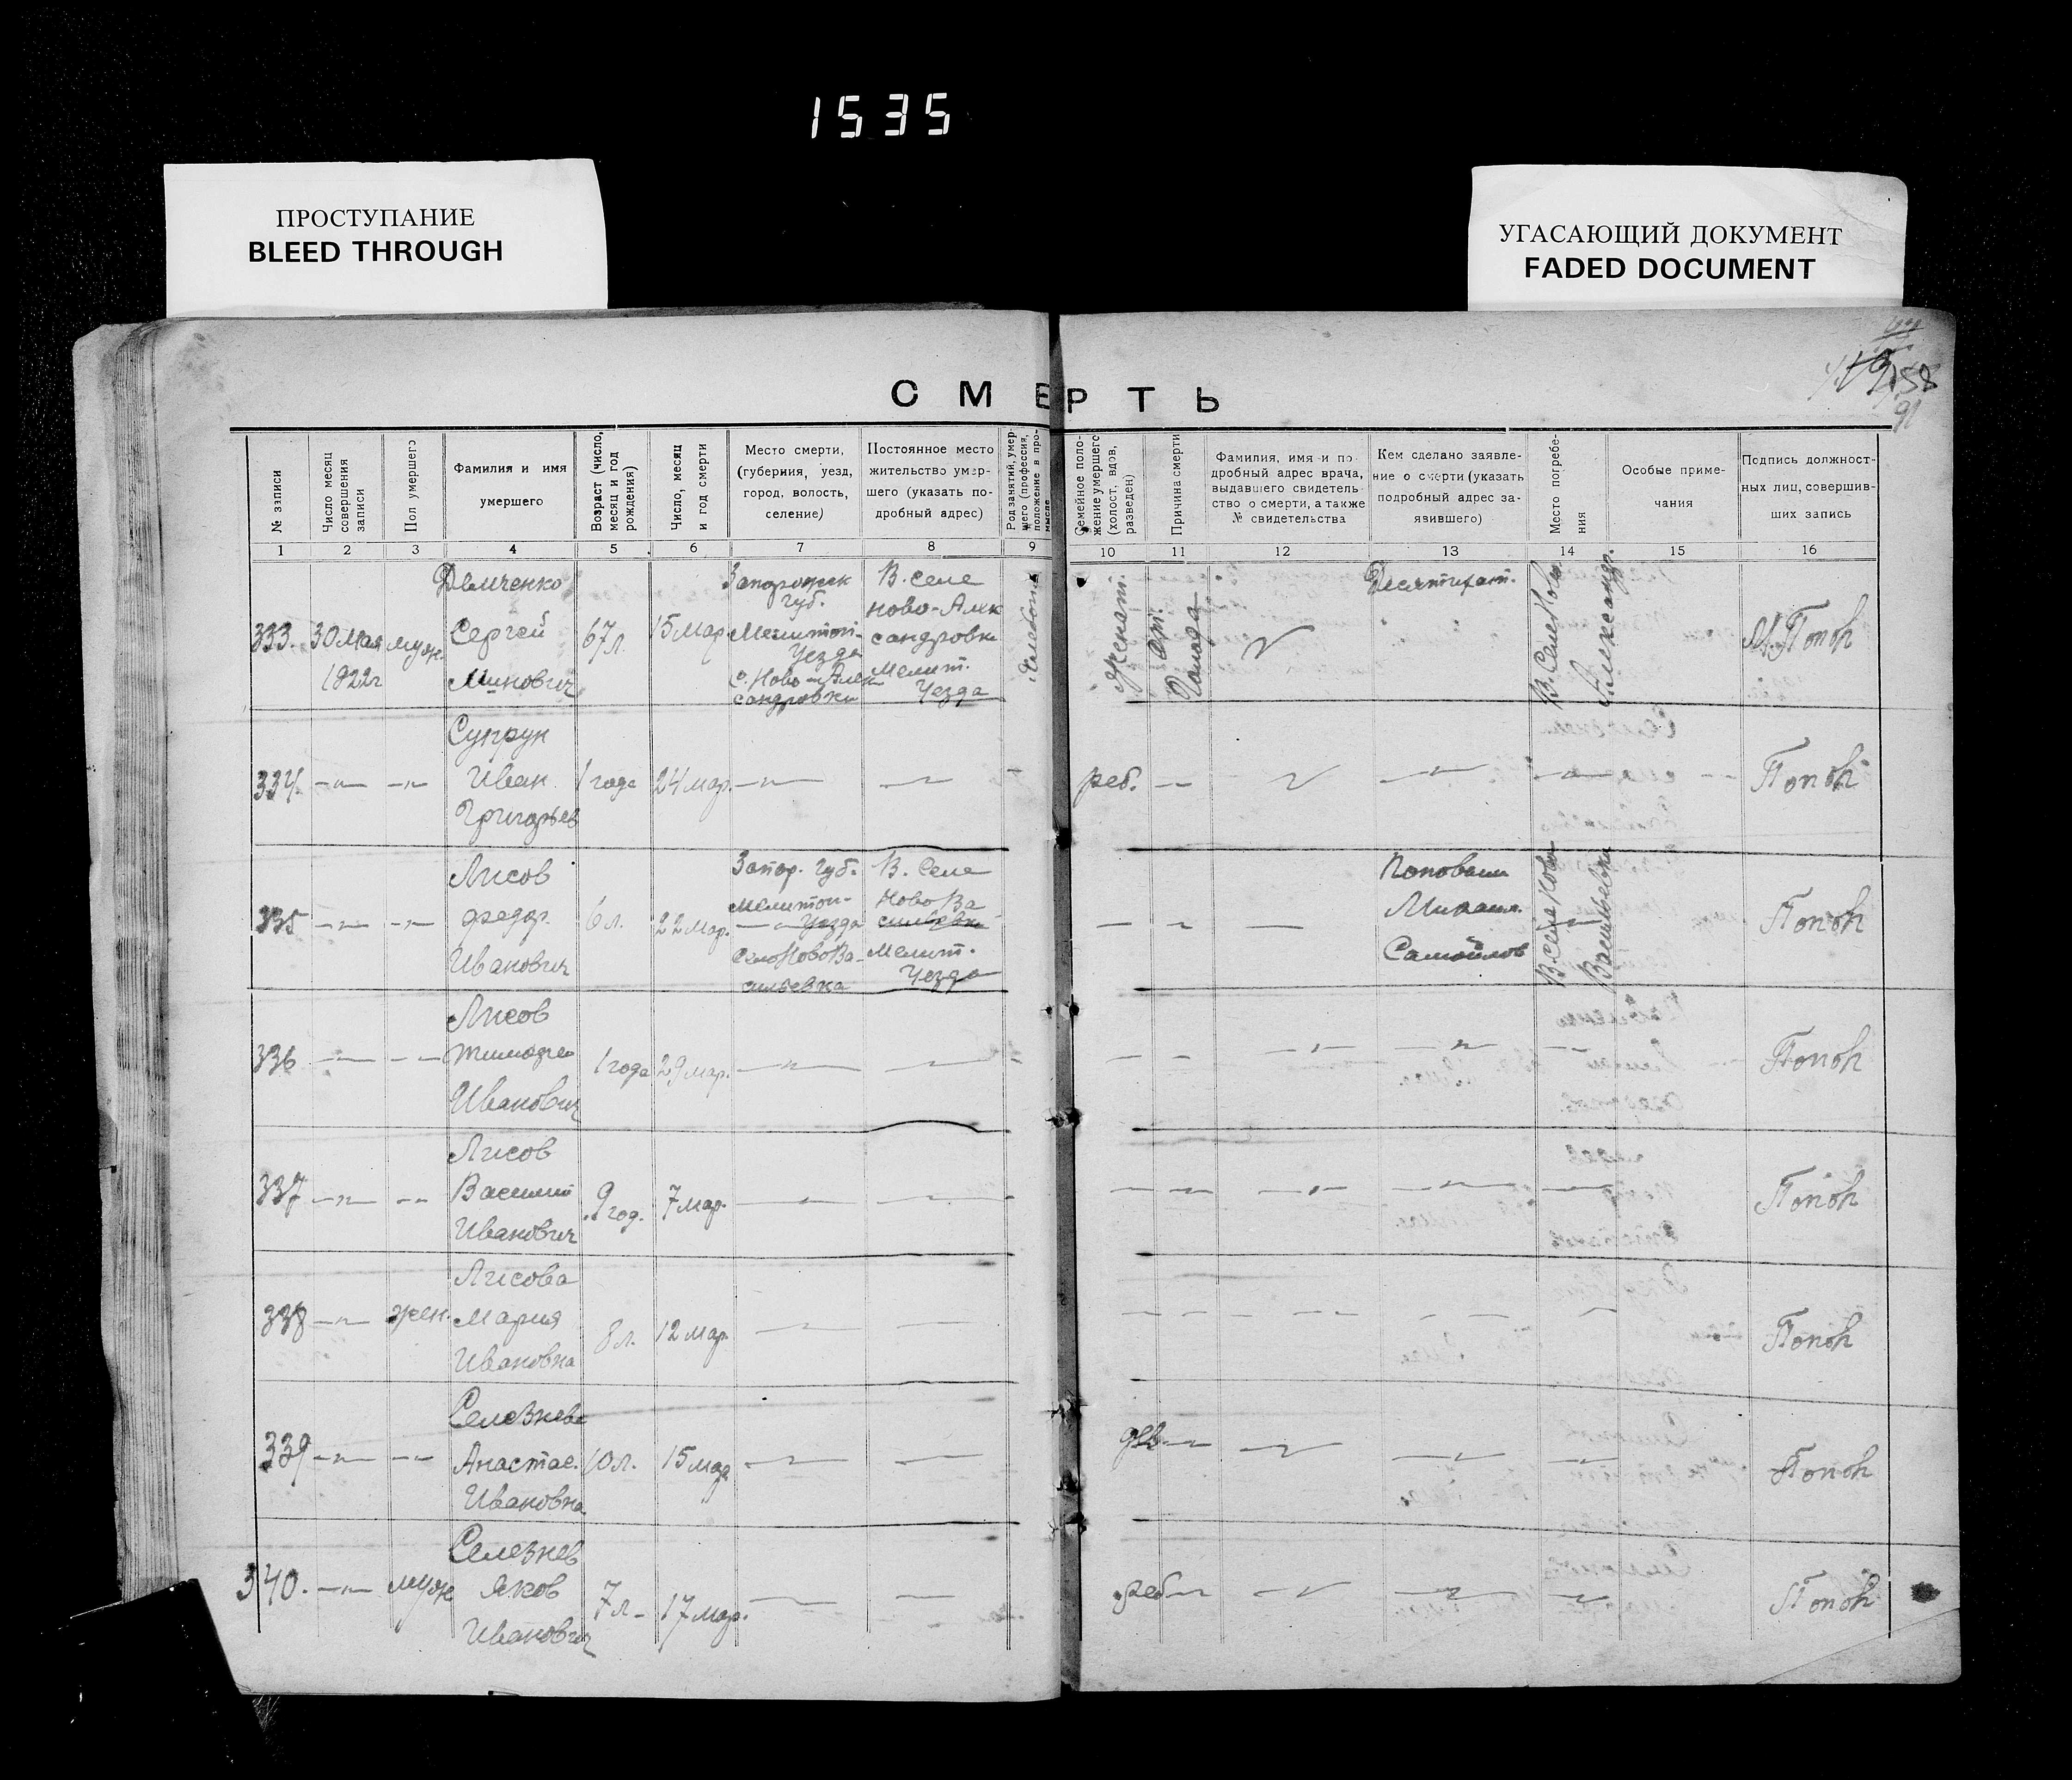 1535
ПРОСТУПАНИЕ
BLEED THROUGH
УГАСАЮЩИЙ ДОКУМЕНТ
FADED DOCUMENT
91
СМЕРТЬ
№ записи
Число месяц
совершения
записи
Пол умершего
Фамилия и имя
умершего
Возраст (число,
месяц и год
рождения)
Число, месяц
и год смерти
Место смерти,
(губериия, уезд,
город, волость,
селение)
Постоянное место
жительство умер-
шего (указать по-
дробный адрес)
Род занятий, умер-
шего (профессия,
положение в про-
мысле
Семейное поло-
жение умершего
(холост. вдов,
разведен)
Причина смерти
Фамилия, имя и по
дробный адрес врача,
выдавшего свидетель
ство о смерти, а также
№ свидетельства
Кем сделано заявле-
ние о смерти (указать
подробный адрес за-
явившего)
Место погребе-
ния
Особые приме-
чания
Подпись должност-
ных лиц, совершив-
ших запись
1 2 3 4 5 6 7 8 9 10 11 12 13 14 15 16
333.
30 мая
1922г
муж.
Демченко
Сергей
Минович
67 л.
15 мар
Запорожск
губ.
Мелитоп-
Уезда
с. Ново-Алек
сандровки
В. селе
Ново-Алек
сандровки
Мелит.
Уезда
женат.
от.
Голода
Десятихат.
В. Селе Ново
Александр.
М. Попов
334.
Супрун
Иван
Григорьев
1 года
24 мар.
реб.
Попов
335
Лисов
Федор.
Иванович
6 л.
22 мар.
Запор. губ.
Мелитоп-
Уезда
Село Ново Ва-
сильевка
В. Селе
Ново Ва
сильевки
Мелит.
Уезда
Михаил.
Самойлов
В. Селе Ново
Васильевки
Попов
336
Лисов
Тимофе
Иванович
1 года
29 мар.
Попов
337
Лисов
Василий
Иванович
9 год.
7 мар.
Попов
338
жен.
Лисова
Мария
Ивановна
8 л.
12 мар.
Попов
339
Селезнева
Анастас.
Ивановна
10 л.
15 мар
дев
Попов
340.
муж
Селезнев
Яков
Иванович
7 л-
17 мар.
реб
Попов